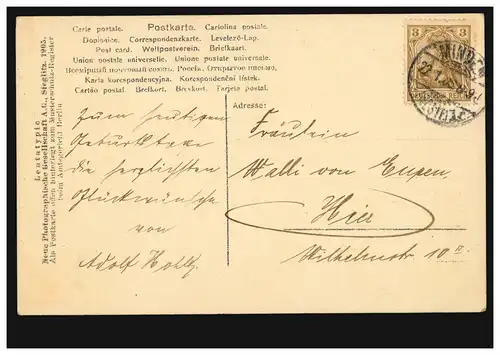 Carte postale. Postkarte. Cartolina postale.
Dopisnice. Correspondenzkarte. Levelező-Lap.
Post card. Weltpostverein. Briefkaart.
Union postale universelle. Unione postale universale.
Всемірный почтовый союзъ. Россія. Открытое письмо.
Karta korespondencyjna. Korespondenční lístek.
Cartão postal. Brefkort. Brevkort. Tarjeta postal.
Lentatypie
Neue Photographische Gesellschaft A.G., Steglitz 1905.
Als Postkarte offen hinterlegt zum Musterschutz-Register
beim Amtsgericht Berlin
3 3
DEUTSCHES REICH
MINDEN
Zum heutigen
Geburtstage
die herzlichsten
Glückwünsche
von
Adolf
Adresse:
Fräulein
Walli von Eupen
Hier
Wilhelmstr 10 II